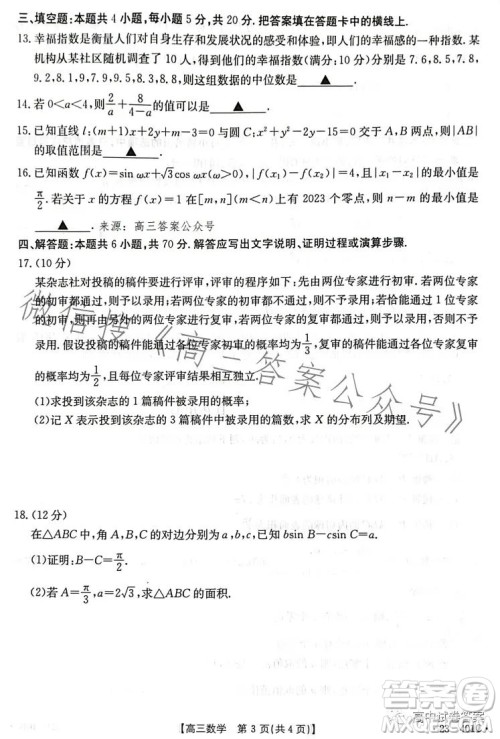 三、填空题:本题共4小题,每小题5分,共20分.把答案填在答题卡中的横线上.
13.幸福指数是衡量人们对自身生存和发展状况的感受和体验,即人们的幸福感的一种指数.某
机构从某社区随机调查了10人,得到他们的幸福指数(满分:10分)分别是7.6,8.5,7.8,
9.2,8.1,9,7.9,9.5,8.3,8.8,则这组数据的中位数是 ▲ .
14.若0<a<4,则2/a+8/(4-a)的值可以是 ▲ .
15.已知直线l:(m+1)x+2y+m-3=0与圆C:x²+y²-2y-15=0交于A,B两点,则|AB|
的取值范围是 ▲ .
16.已知函数f(x)=sin ωx+√3cos ωx(ω>0),|f(x₁)-f(x₂)|=4,|x₁-x₂|的最小值是
π/2.若关于x的方程f(x)=1在[m,n]上有2023个零点,则n-m的最小值是
▲ . 来源:高三答案公众号
四、解答题:本题共6小题,共70分.解答应写出文字说明、证明过程或演算步骤.
17.(10分)
某杂志社对投稿的稿件要进行评审,评审的程序如下:先由两位专家进行初审.若两位专家
的初审都通过,则予以录用;若两位专家的初审都不通过,则不予录用;若恰能通过一位专家
的初审,则再由另外的两位专家进行复审,若两位专家的复审都通过,则予以录用,否则不予
录用.假设投稿的稿件能通过各位专家初审的概率均为1/3,通过各位专家复审的概率均为
1/2,且每位专家评审结果相互独立.
(1)求投到该杂志的1篇稿件被录用的概率;
(2)记X表示投到该杂志的3篇稿件中被录用的篇数,求X的分布列及期望.
微信搜《高三答案公众号》
18.(12分)
在△ABC中,角A,B,C的对边分别为a,b,c,已知bsin B-csin C=a.
(1)证明:B-C=π/2.
(2)若A=π/3,a=2√3,求△ABC的面积.
【高三数学 第3页(共4页)】
高中试卷答案